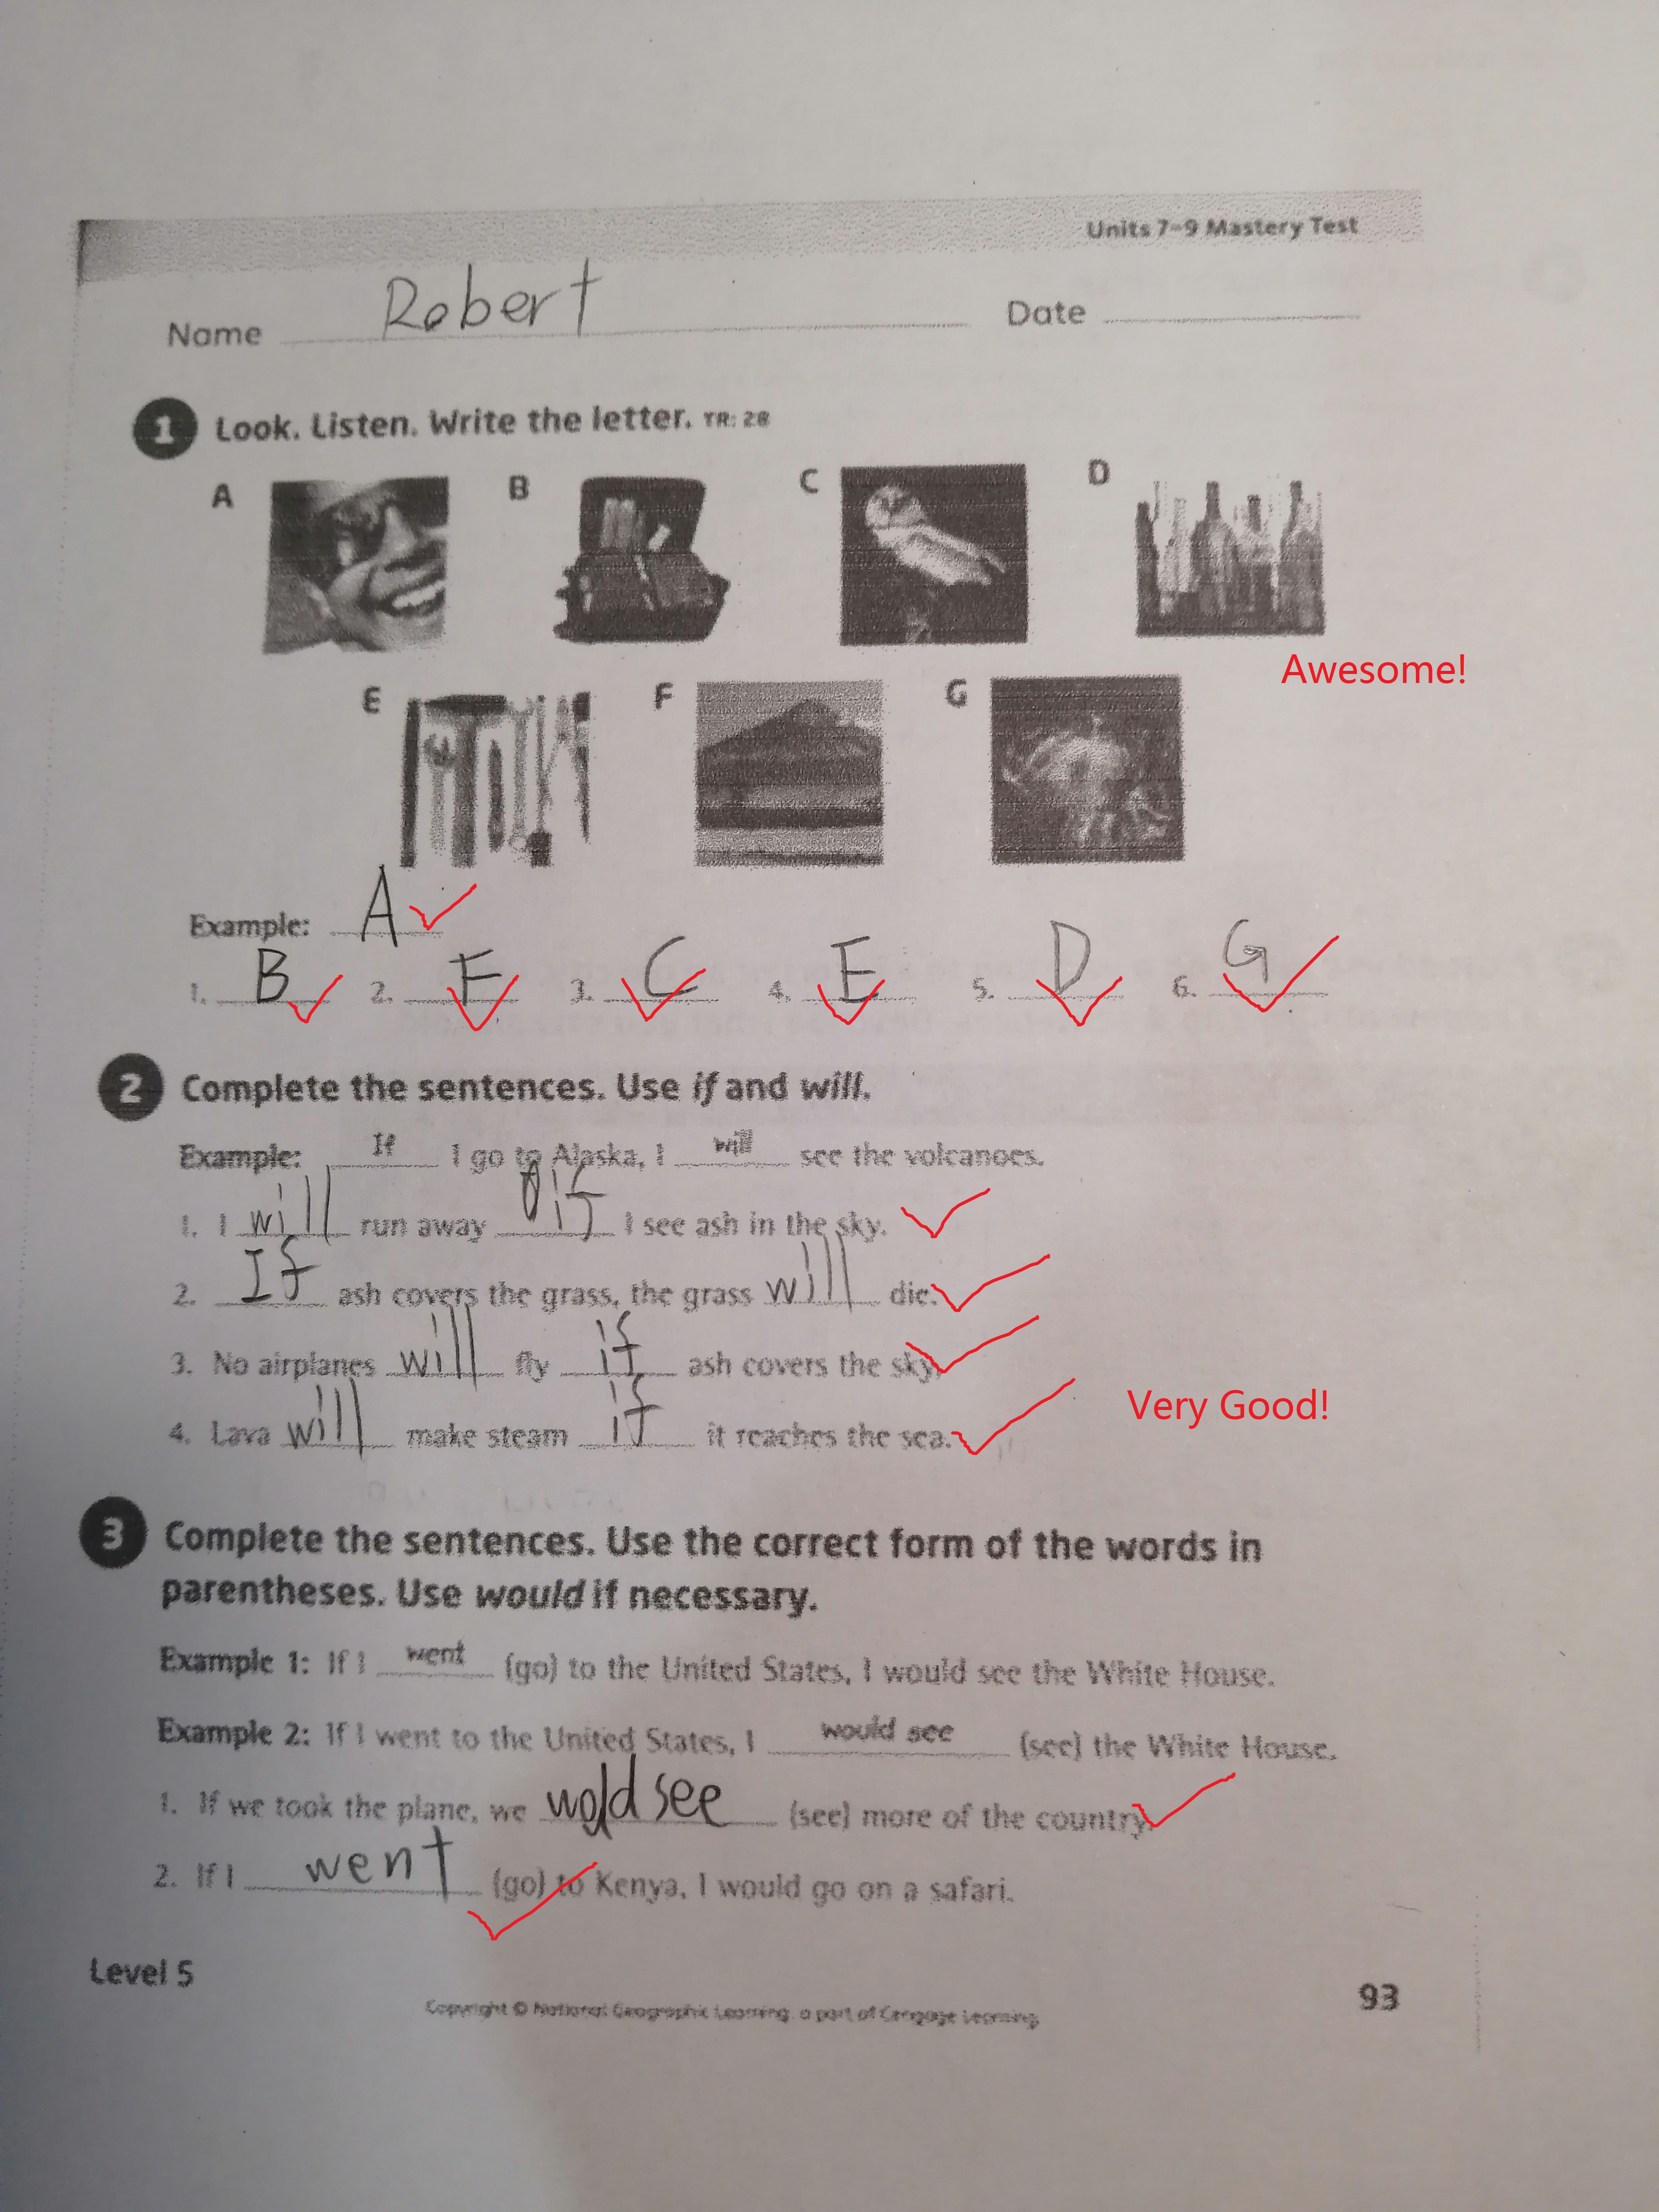 Units 7-9 Mastery Test
Name Robert Date
1 Look. Listen. Write the letter. TR: 28
A B C D
Awesome!
E F G
Example: A
1. B 2. F 3. C 4. E 5. D 6. G
2 Complete the sentences. Use if and will.
Example: If I go to Alaska, I will see the volcanoes.
1. I will run away if I see ash in the sky.
2. If ash covers the grass, the grass will die.
3. No airplanes will fly if ash covers the sky.
4. Lava will make steam if it reaches the sea.
Very Good!
3 Complete the sentences. Use the correct form of the words in
parentheses. Use would if necessary.
Example 1: If I went (go) to the United States, I would see the White House.
Example 2: If I went to the United States, I would see (see) the White House.
1. If we took the plane, we wold see (see) more of the country.
2. If I went (go) to Kenya, I would go on a safari.
Level 5
93
Copyright © National Geographic Learning, a part of Cengage Learning